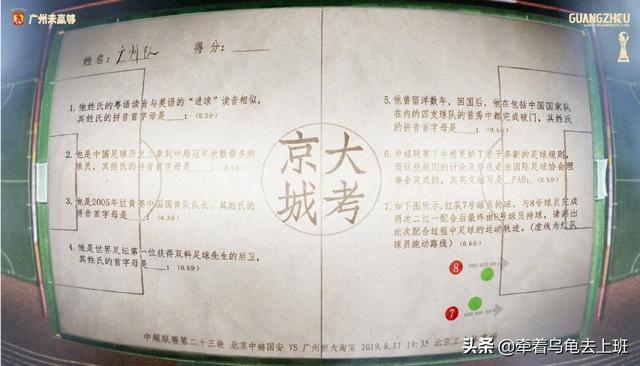 广州未赢够
GUANGZHOU
姓名：广州队
得分：
1.他姓氏的粤语读音与英语的“进球”读音相似，
其姓氏的拼音首字母是___；(0.3分)
2.他是中国足球历史上拿到中超冠军次数最多的
球员，其姓氏的拼音首字母是___；(0.5分)
3.他是2005年世青赛中国国青队队长，其姓氏的
拼音首字母是___；(0.3分)
4.他是世界足坛第一位获得双料足球先生的后卫，
其姓氏的首字母是___；(0.5分)
京城
大考
5.他曾留洋数年，回国后，他在包括中国国家队
在内的四支球队的首秀中都完成破门，其姓氏
的拼音首字母是___；
6.中超联赛下半程更新了若干条新的足球规则，
而这些规则的讨论及修改是由国际足球协会理
事会完成的，其英文缩写是_FAB；(0.5分)
7.如下图所示，红队7号球员持球，与8号球员完成
两次二过一配合后最终由8号球员持球，请画出
此次配合过程中足球的运动轨迹。(虚线为红队
球员跑动路线)(0.6分)
8
7
中超联赛第二十三轮 北京中赫国安 VS 广州恒大淘宝 2019.8.11 19:35 北京工人体育场
头条 @牵着乌龟去上班